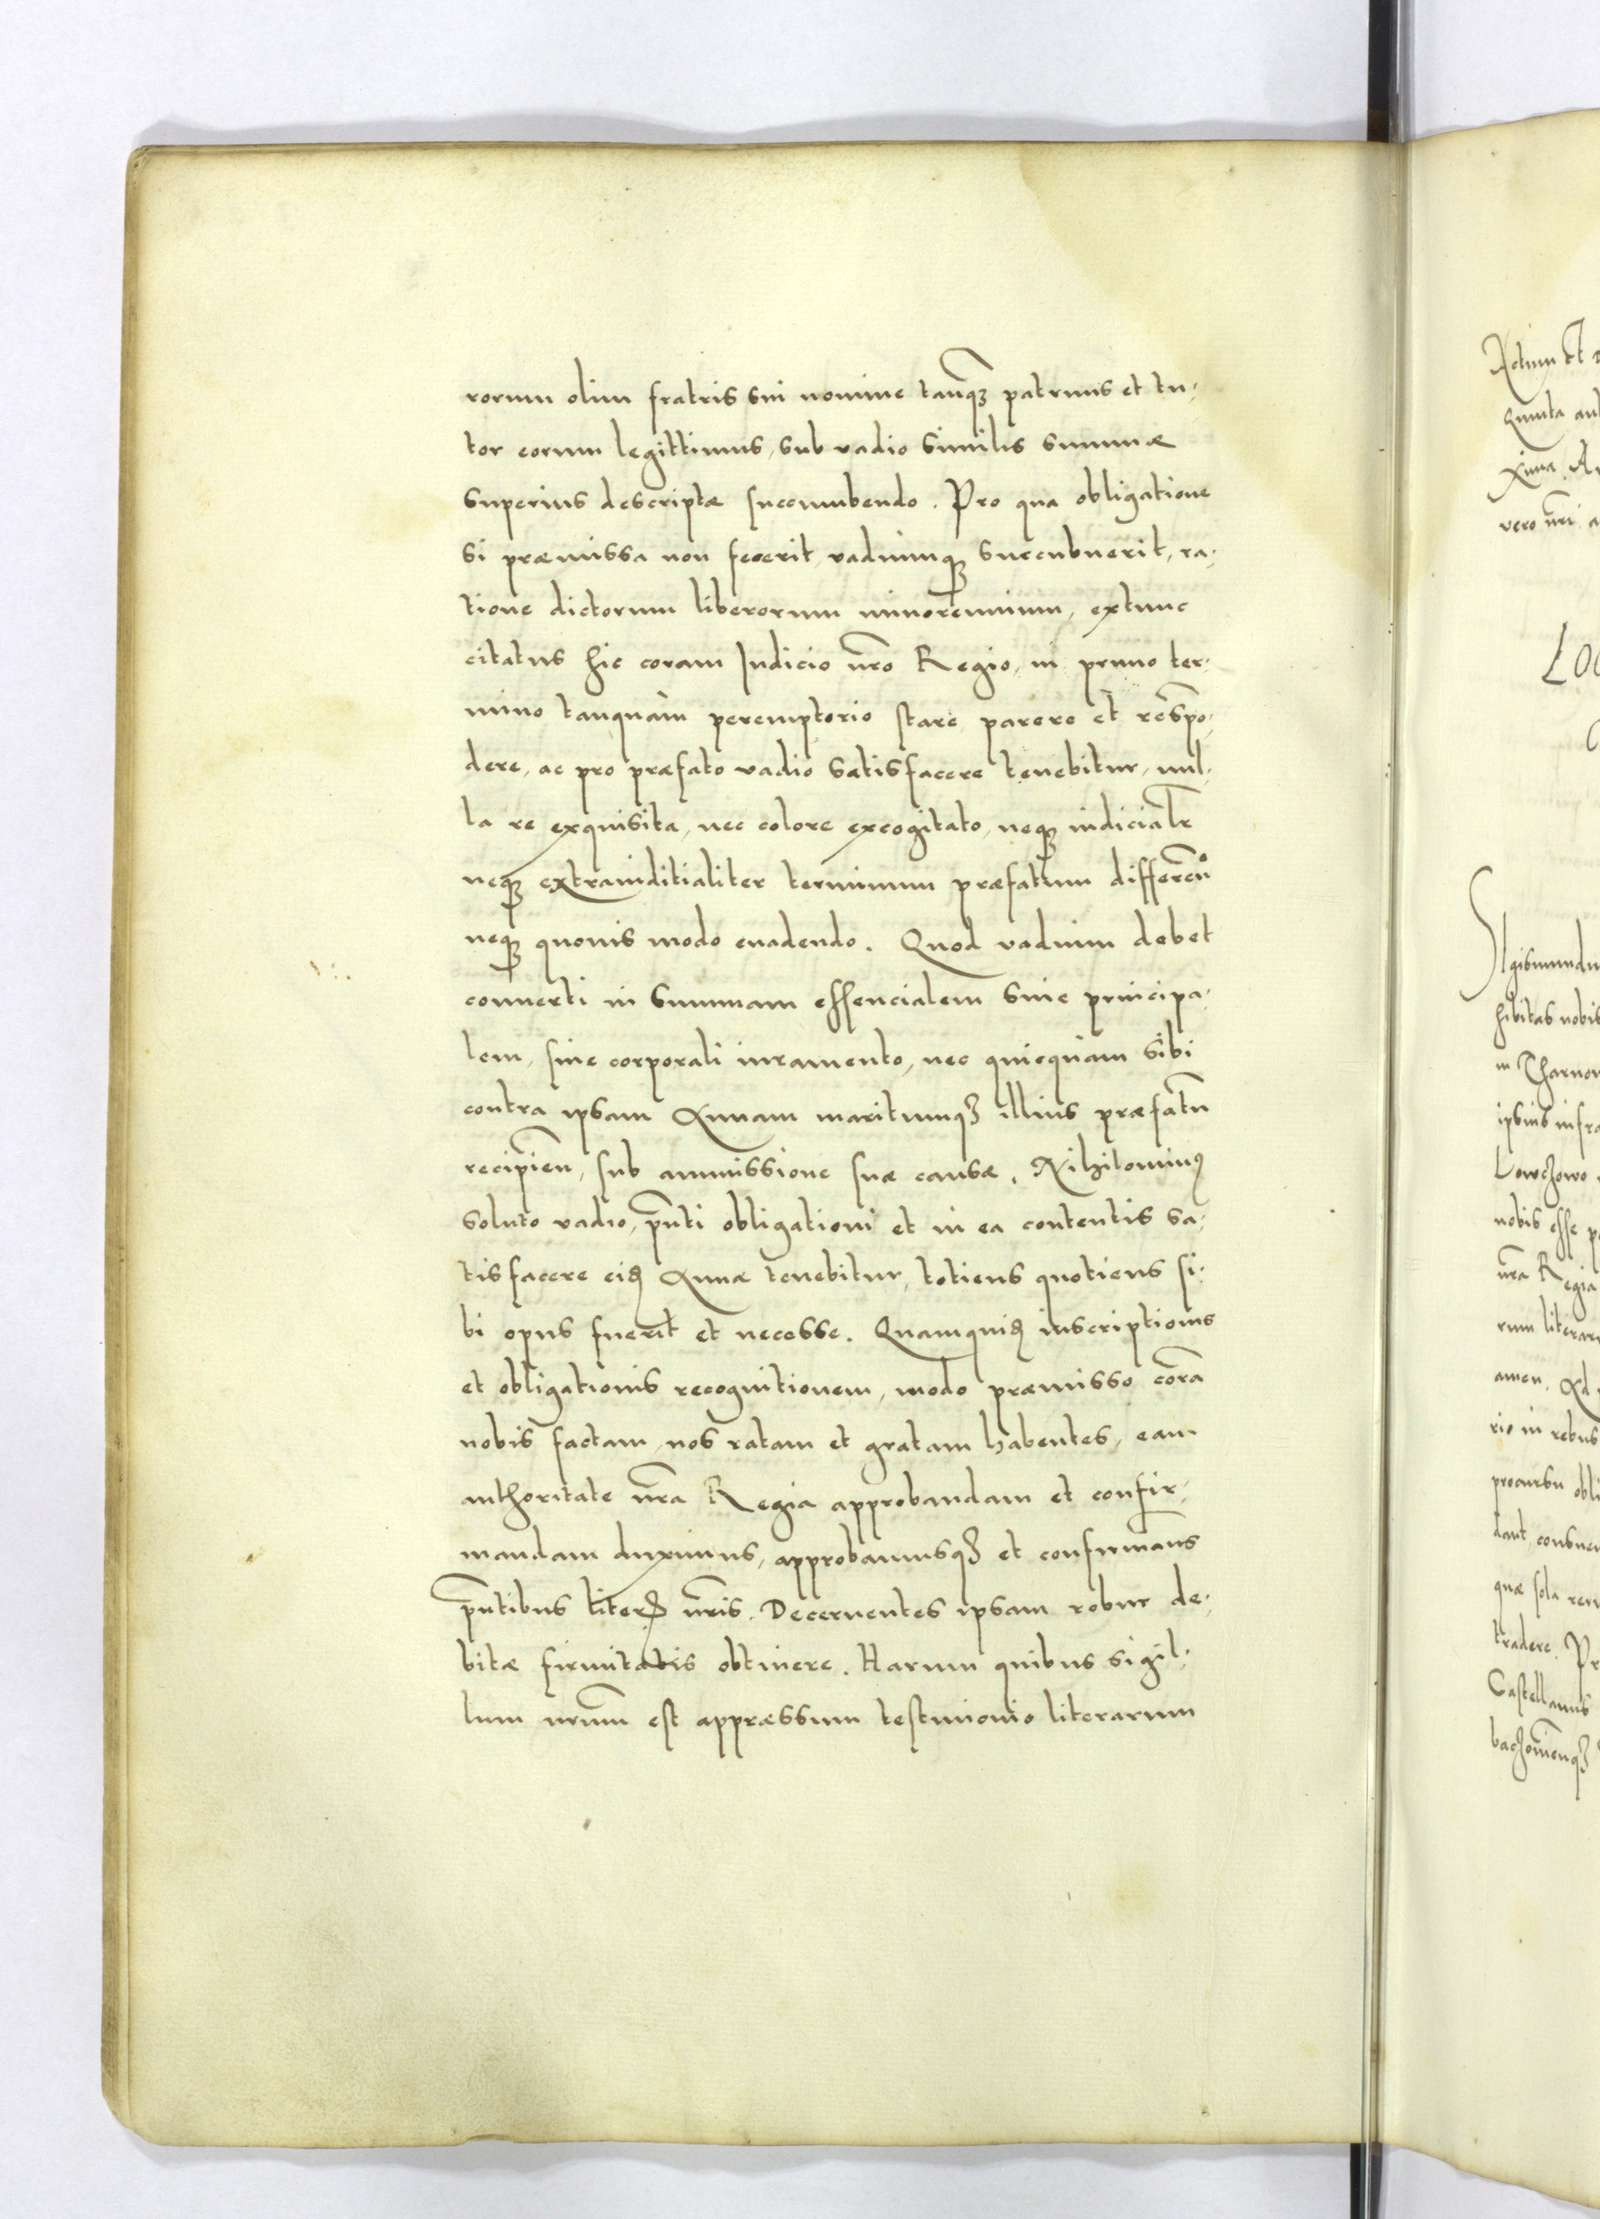 rorum olim fratris sui nomine tanq̃ꝫ patruus et tu-
tor eorum legittimus, sub vadio similis summæ
superius descriptæ succumbendo. Pro qua obligatione
si præmissa non fecerit vadiumqꝫ succubuerit, ra-
tione dictorum liberorum minorennium, extunc
citatus hic coram Iudicio nr̃o Regio, in primo ter-
mino tanquam peremptorio stare parere et respõ-
dere, ac pro præfato vadio satisfacere tenebitur, nul-
la re exquisita, nec colore excogitato, neqꝫ iudicialr̃
neqꝫ extraiuditialiter terminum præfatum differen̄o
neqꝫ quouis modo euadendo. Quod vadium debet
conuerti in summam essencialem siue principa-
lem, sine corporali iuramento, nec quicquam sibi
contra ipsam Annam maritumqꝫ illius præfatũ
recipien̄, sub ammissione suæ causæ. Nihilominꝰ
soluto vadio, pñti obligationi et in ea contentis sa-
tisfacere eidꝫ Annæ tenebitur, totiens quotiens si-
bi opus fuerit et necesse. Quamquidꝫ inscriptionis
et obligationis recognitionem, modo præmisso corã
nobis factam, nos ratam et gratam habentes, eam
authoritate nr̃a Regia approbandam et confir-
mandam duximus, approbamusqꝫ et confirmam̃s
pñtibus literꝭ nr̃is. Decernentes ipsam robur de-
bitæ firmitatis obtinere. Harum quibus sigil-
lum nr̃um est appræssum testimonio literarum
Actum et
Quinta
xima. 
vero nr̃i
LOC
SIgismundu
hibitas nobis
in Tharnow
ipsius infra
Lowczowo
nobis esse
nr̃a Regia
rum literar
amen. Ad
rio in rebus
procursu obli
dant, consue
quæ sola
tradere. Pr
Castellanus